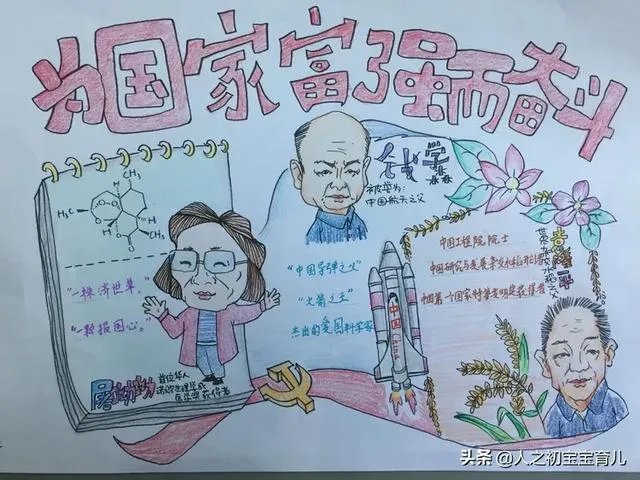 为国家富强而奋斗
CH₃
H₃C
CH₃
"一株济世草,
"一颗报国心。
屠呦呦
首位华人
诺贝尔生理学或
医学奖获得者
钱学森
被誉为:
中国航天之父
"中国导弹之父"
"火箭之王"
杰出的爱国科学家
中国
袁隆平
世界杂交水稻之父
中国工程院院士
中国研究与发展杂交水稻
中国第一个国家特等发明奖获得者
头条 @人之初宝宝育儿